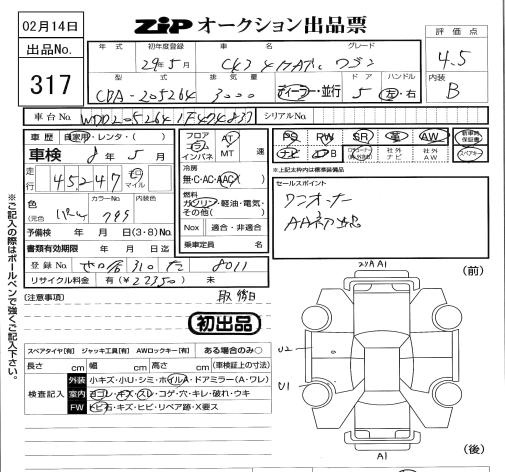 02月14日
ZiP オークション出品票
出品No.
317
年式 初年度登録 車名 グレード
29年5月
評価点
4.5
内装
B
型式 排気量 ドア ハンドル
CDA-205264 3000 ディーラー・並行 5 左・右
車台No. シリアルNo.
車歴 自家用・レンタ・( )
車検 8年5月
走行 45,247 キロ マイル
色 (元色) カラーNo. 内装色
799
予備検 年 月 日(3・8)No.
書類有効期限 年 月 日迄
登録No. 310 た 8011
リサイクル料金 有(¥22350) 未
フロア コラム インパネ AT MT 速
冷房 無・C・AC・AAC
燃料 ガソリン・軽油・電気・その他( )
Nox 適合・非適合
乗車定員 名
PS PW SR 革 AW 新車時保証書
ナビ AB 社外ナビ 社外AW スペアキー
※上記太枠内は標準装備品
セールスポイント
ワンオーナー
AA初出品
(注意事項)
初出品
スペアタイヤ[有] ジャッキ工具[有] AWロックキー[有] ある場合のみ○
長さ cm 幅 cm 高さ cm (車検証上の寸法)
検査記入
外装 小キズ・小U・シミ・ホイルA・ドアミラー(A・ワレ)
室内 ヨゴレ・キズ・スレ・コゲ・穴・キレ・破れ・ウキ
FW トビ石・キズ・ヒビ・リペア跡・X要ス
A1
(前)
U2
U1
A1
(後)
※ご記入の際はボールペンで強くご記入下さい。